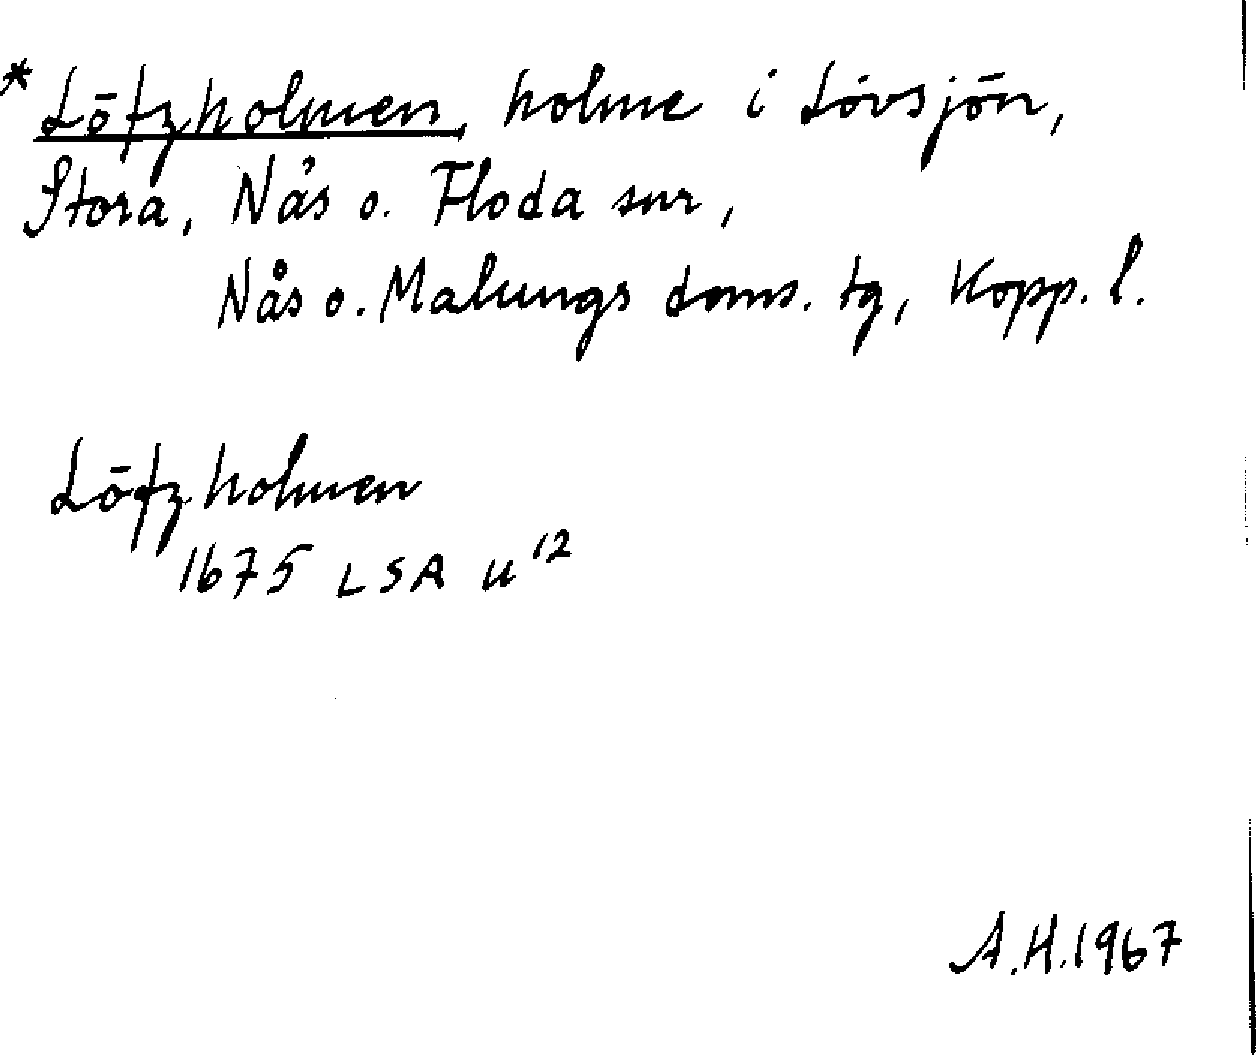 * Löfzholmen, holme i Lövsjön,
Stora, Nås o. Floda snr,
Nås o. Malungs doms. tg, Kopp. l.
Löfzholmen
1675 LSA U 12
A.H.1967